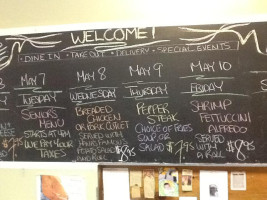 WELCOME!
DINE IN • TAKE OUT • DELIVERY • SPECIAL EVENTS
MAY 7
TUESDAY
SENIORS
MENU
STARTS AT 4PM
WE PAY YOUR
TAXES
MAY 8
WEDNESDAY
BREADED
CHICKEN
OR PORK CUTLET
SERVED WITH
POTATO SALAD
AND ROLL
$8.95
MAY 9
THURSDAY
PEPPER
STEAK
CHOICE OF FRIES
SOUP OR
SALAD
$7.95
MAY 10
FRIDAY
SHRIMP
FETTUCCINI
ALFREDO
SERVED
WITH
A ROLL
$8.95